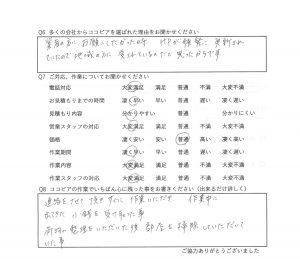 Q6 多くの会社からココピアを選ばれた理由をお聞かせください
業者の方にお願いしたかった時 HPが頻繁に更新され
ていたので地域の方に愛されているんだと思ったからです
Q7 ご対応、作業についてお聞かせください
電話対応 大変満足 満足 普通 不満 大変不満
お見積もりまでの時間 凄く早い 早い 普通 遅い 凄く遅い
見積もり内容 分かりやすい 普通 分かりにくい
営業スタッフの対応 大変満足 満足 普通 不満 大変不満
価格 凄く安い 安い 普通 高い 凄く高い
作業期間 凄く早い 早い 普通 遅い 凄く遅い
作業内容 大変満足 満足 普通 不満 大変不満
作業スタッフの対応 大変満足 満足 普通 不満 大変不満
Q8 ココピアの作業でいちばん心に残った事をお書きください（出来るだけ詳しく）
連絡をさせて頂きすぐに作業いただき 作業中に
出てきた 小銭を受け取れた事
荷物の整理をいただいた後 部屋を掃除していただいて
いた事
ご協力ありがとうございました